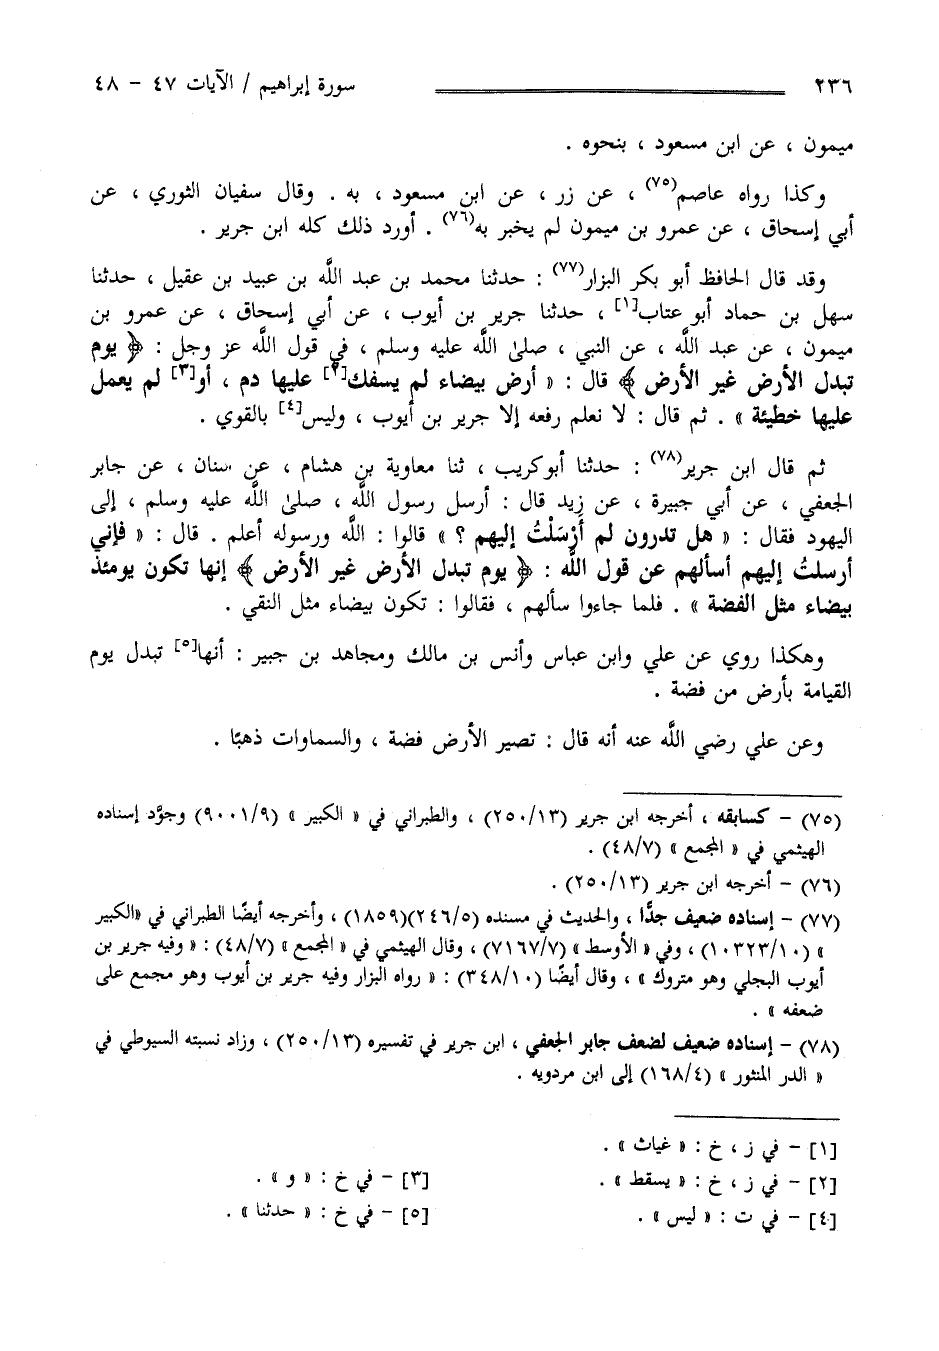 ٢٣٦ سورة إبراهيم / الآيات ٤٧ - ٤٨
ميمون ، عن ابن مسعود ، بنحوه .
وكذا رواه عاصم(٧٥) ، عن زر ، عن ابن مسعود ، به . وقال سفيان الثوري ، عن
أبي إسحاق ، عن عمرو بن ميمون لم يخبر به(٧٦) . أورد ذلك كله ابن جرير .
وقد قال الحافظ أبو بكر البزار(٧٧) : حدثنا محمد بن عبد اللَّه بن عبيد بن عقيل ، حدثنا
سهل بن حماد أبو عتاب[١] ، حدثنا جرير بن أيوب ، عن أبي إسحاق ، عن عمرو بن
ميمون ، عن عبد اللَّه ، عن النبي ، صلىٰ اللَّه عليه وسلم ، في قول اللَّه عز وجل : ﴿ يوم
تبدل الأرض غير الأرض ﴾ قال : « أرض بيضاء لم يسفك[٢] عليها دم ، أو[٣] لم يعمل
عليها خطيئة » . ثم قال : لا نعلم رفعه إلا جرير بن أيوب ، وليس[٤] بالقوي .
ثم قال ابن جرير(٧٨) : حدثنا أبو كريب ، ثنا معاوية بن هشام ، عن سنان ، عن جابر
الجعفي ، عن أبي جبيرة ، عن زيد قال : أرسل رسول اللَّه ، صلىٰ اللَّه عليه وسلم ، إلى
اليهود فقال : « هل تدرون لم أَرْسَلْتُ إليهم ؟ » قالوا : اللَّه ورسوله أعلم . قال : « فإني
أرسلتُ إليهم أسألهم عن قول اللَّه : ﴿ يوم تبدل الأرض غير الأرض ﴾ إنها تكون يومئذ
بيضاء مثل الفضة » . فلما جاءوا سألهم ، فقالوا : تكون بيضاء مثل النقي .
وهكذا روي عن علي وابن عباس وأنس بن مالك ومجاهد بن جبير : أنها[٥] تبدل يوم
القيامة بأرض من فضة .
وعن علي رضي اللَّه عنه أنه قال : تصير الأرض فضة ، والسماوات ذهبًا .
(٧٥) - كسابقه ، أخرجه ابن جرير (٢٥٠/١٣) ، والطبراني في « الكبير » (٩٠٠١/٩) وجوَّد إسناده
الهيثمي في « المجمع » (٤٨/٧) .
(٧٦) - أخرجه ابن جرير (٢٥٠/١٣) .
(٧٧) - إسناده ضعيف جدًّا ، والحديث في مسنده (٢٤٦/٥)(١٨٥٩) ، وأخرجه أيضًا الطبراني في «الكبير
» (١٠٣٢٣/١٠) ، وفي « الأوسط » (٧١٦٧/٧) ، وقال الهيثمي في « المجمع » (٤٨/٧) : « وفيه جرير بن
أيوب البجلي وهو متروك » ، وقال أيضًا (٣٤٨/١٠) : « رواه البزار وفيه جرير بن أيوب وهو مجمع على
ضعفه » .
(٧٨) - إسناده ضعيف لضعف جابر الجعفي ، ابن جرير في تفسيره (٢٥٠/١٣) ، وزاد نسبته السيوطي في
« الدر المنثور » (١٦٨/٤) إلى ابن مردويه .
[١] - في ز ، خ : « غياث » .
[٢] - في ز ، خ : « يسقط » . [٣] - في خ : « و » .
[٤] - في ت : « ليس » . [٥] - في خ : « حدثنا » .